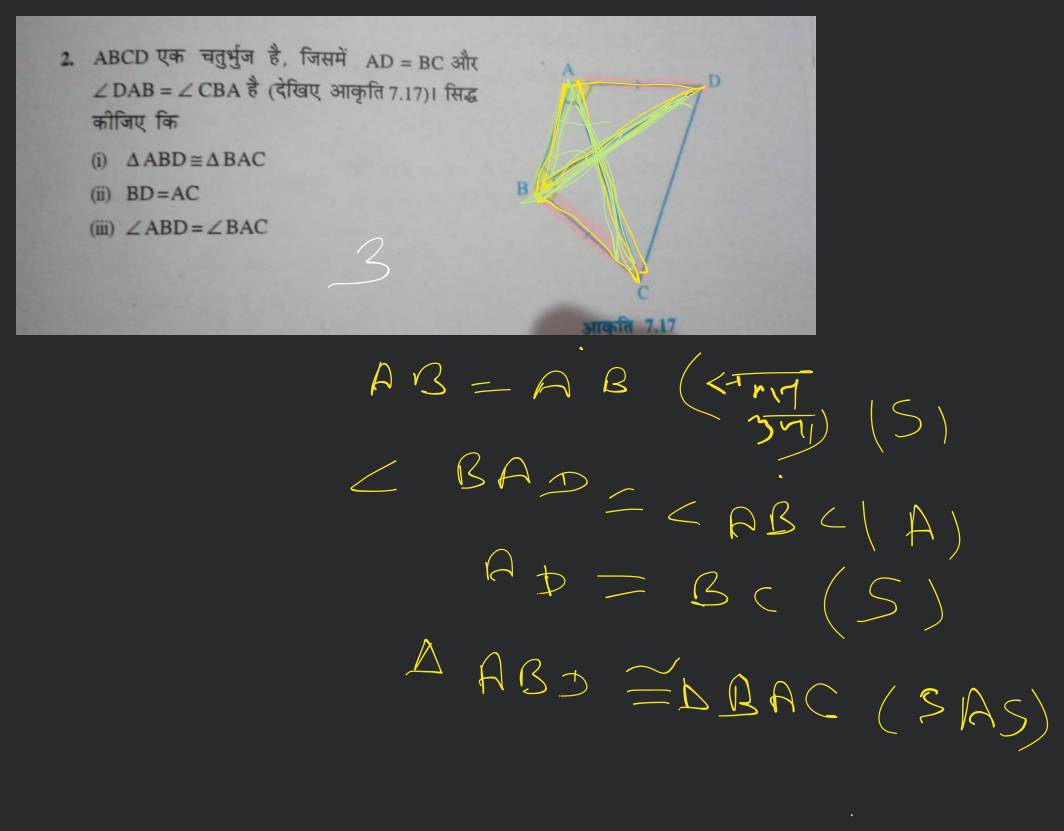 2. ABCD एक चतुर्भुज है, जिसमें AD = BC और
∠DAB = ∠CBA है (देखिए आकृति 7.17)। सिद्ध
कीजिए कि
(i) ΔABD≅ΔBAC
(ii) BD=AC
(iii) ∠ABD=∠BAC
A
D
B
C
आकृति 7.17
3
AB = AB ( (S)
∠ BAD = ∠ ABC (A)
AD = BC (S)
Δ ABD ≅ Δ BAC (SAS)